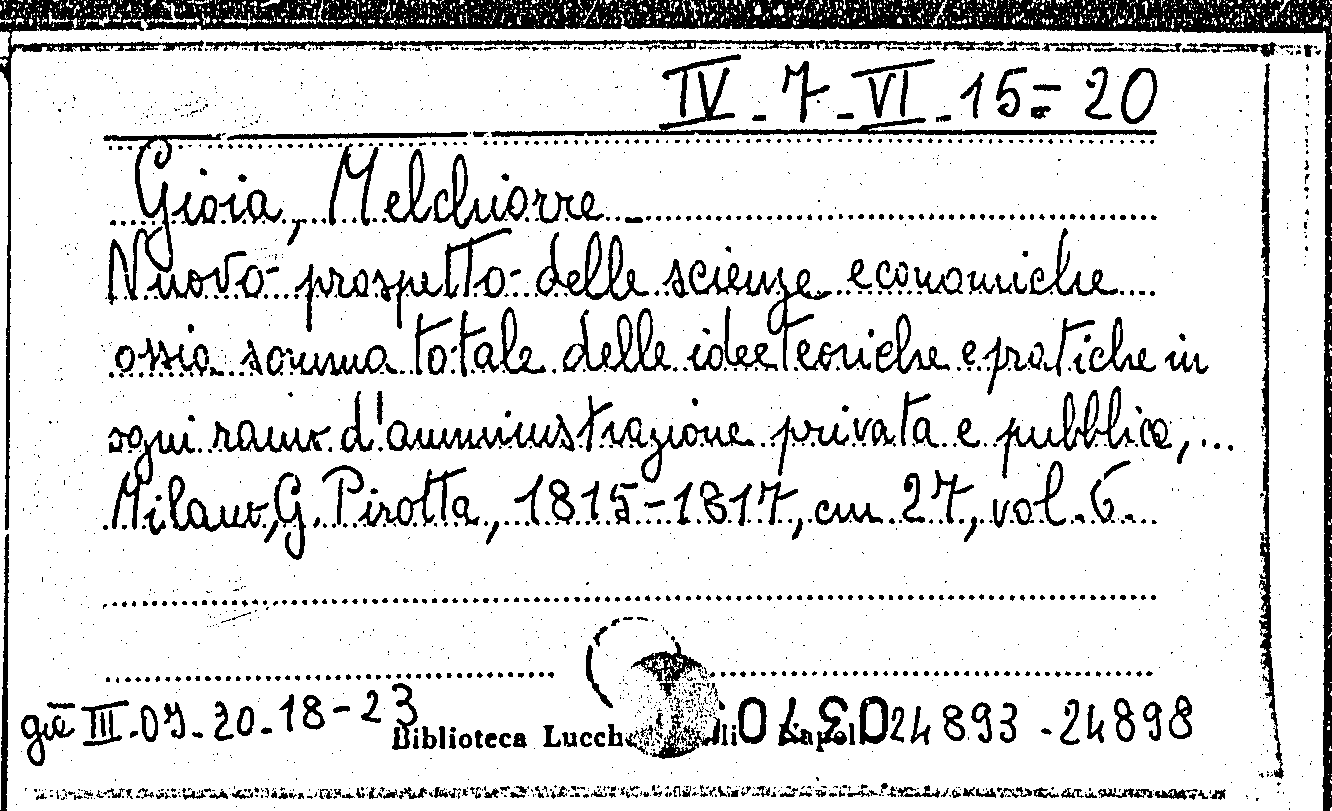 IV - 7 - VI - 15 = 20
Gioia, Melchiorre -
Nuovo prospetto delle scienze economiche
ossia somma totale delle idee teoriche e pratiche in
ogni ramo d'amministrazione privata e pubblica, ...
Milano, G. Pirotta, 1815-1817, cm 27, vol. 6.
già III - 09 - 20 - 18 - 23
Biblioteca 24893 - 24898